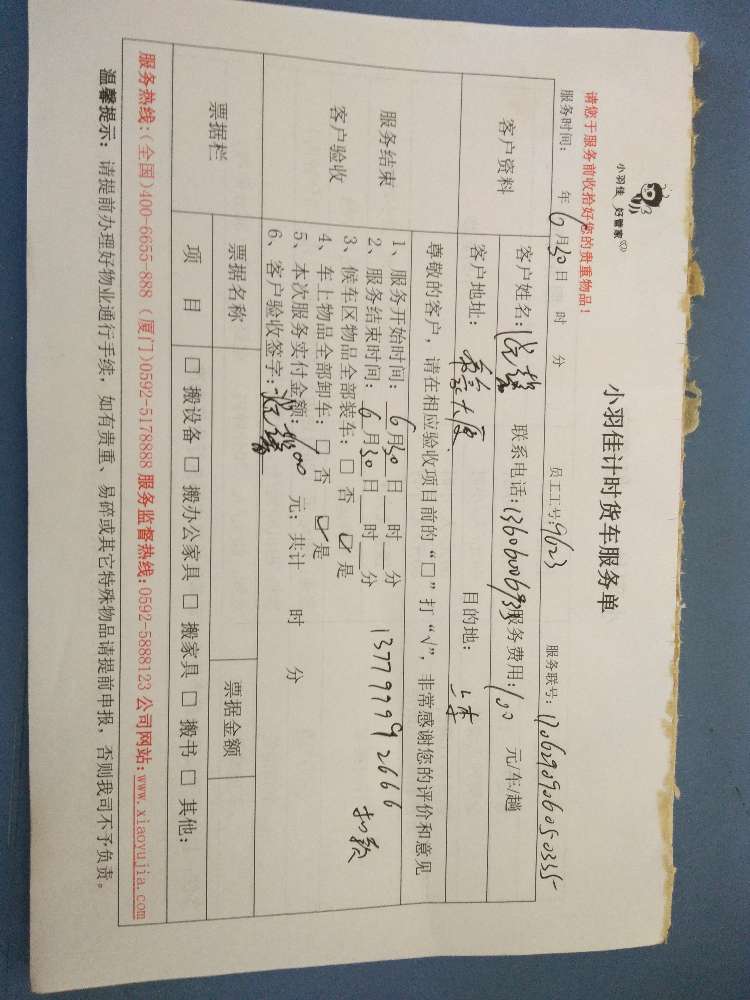 小羽佳 好管家
小羽佳计时货车服务单
请您于服务前收拾好您的贵重物品！
服务时间： 年 6月30日 时 分 员工工号：9623 服务联号：
客户资料
客户姓名： 联系电话： 服务费用：100 元/车/趟
客户地址： 大厦 目的地：
尊敬的客户，请在相应验收项目前的“□”打“√”，非常感谢您的评价和意见
服务结束
客户验收
1、服务开始时间：6月30日__时__分
2、服务结束时间：6月30日__时__分 13779992666
3、候车区物品全部装车：□ 否 ☑ 是 扣款
4、车上物品全部卸车：□ 否 ☑ 是
5、本次服务实付金额： 元；共计 时 分
6、客户验收签字：
票据栏
票据名称
票据金额
项 目 □ 搬设备 □ 搬办公家具 □ 搬家具 □ 搬书 □ 其他：
服务热线：（全国）400-6655-888（厦门）0592-5178888 服务监督热线：0592-5888123 公司网站：www.xiaoyujia.com
温馨提示：请提前办理好物业通行手续，如有贵重、易碎或其它特殊物品请提前申报，否则我司不予负责。